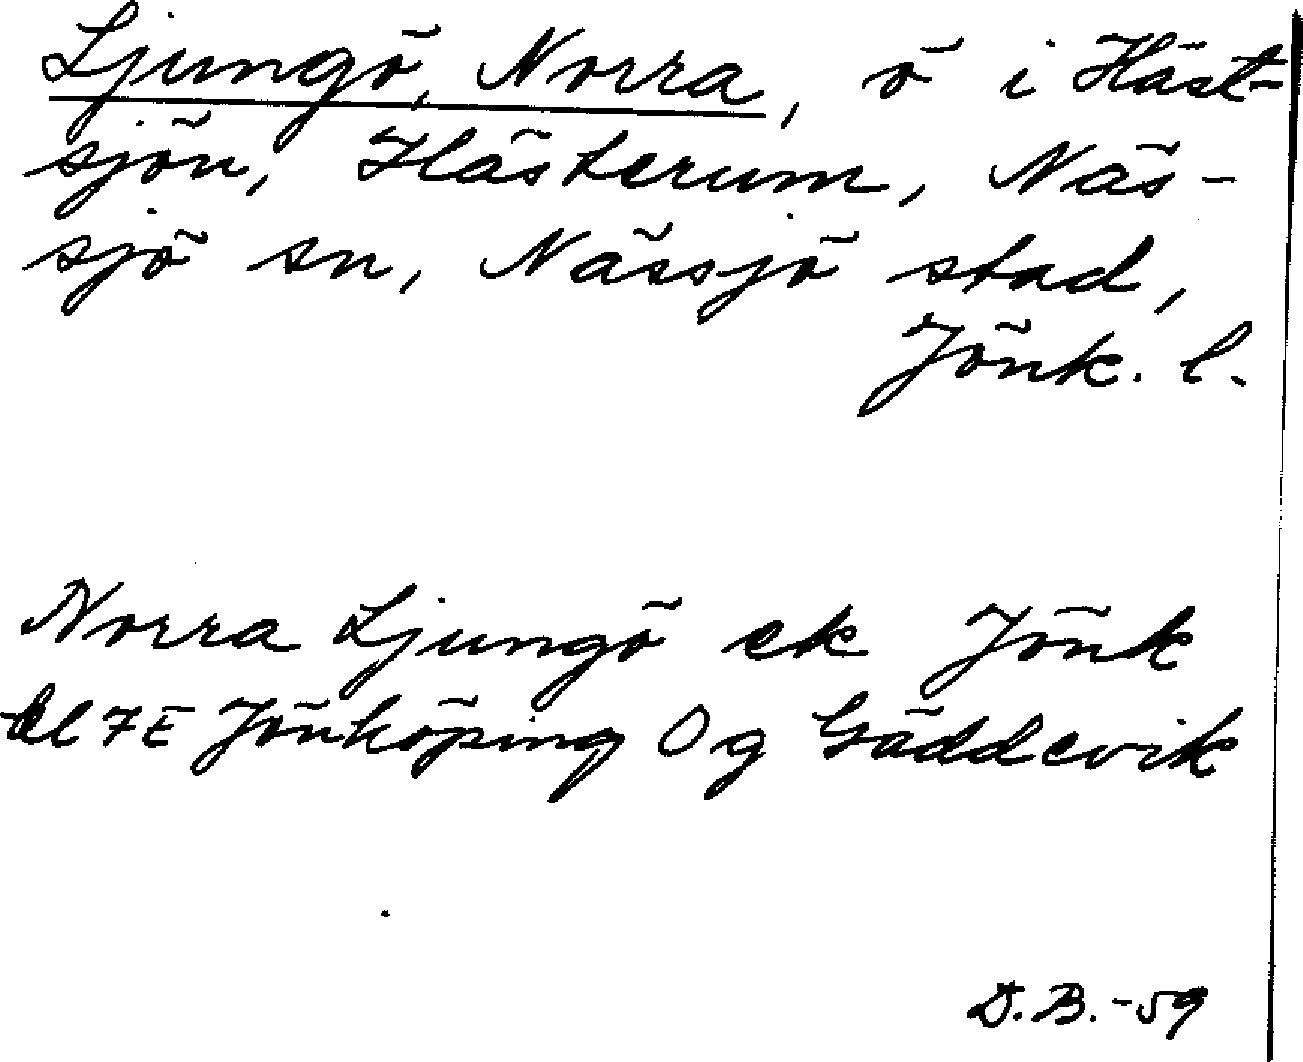 Ljungö, Norra, ö i Häst-
sjön, Hästerum, Näs-
sjö sn, Nässjö stad,
Jönk. l.
Norra Ljungö ek Jönk
7E Jönköping Og Gäddevik
D.B.-59